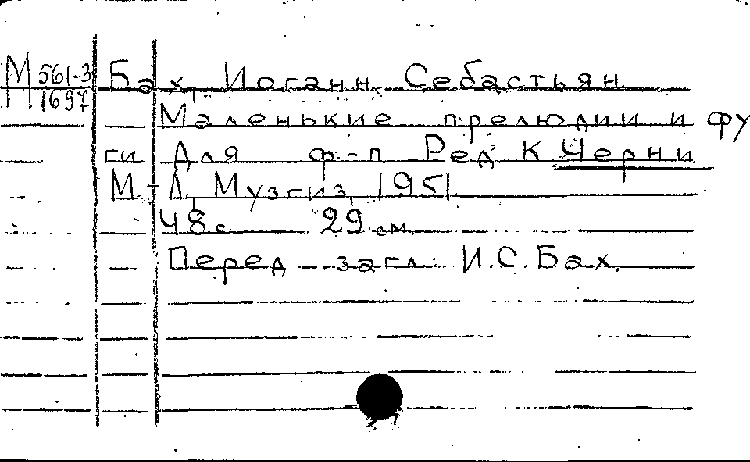 М 561-3
1697
Бах, Иоганн Себастьян
Маленькие прелюдии и фу
ги Для ф-п Ред К Черни
М-Л, Музгиз, 1951
48 с 29 см
Перед загл. И.С. Бах.